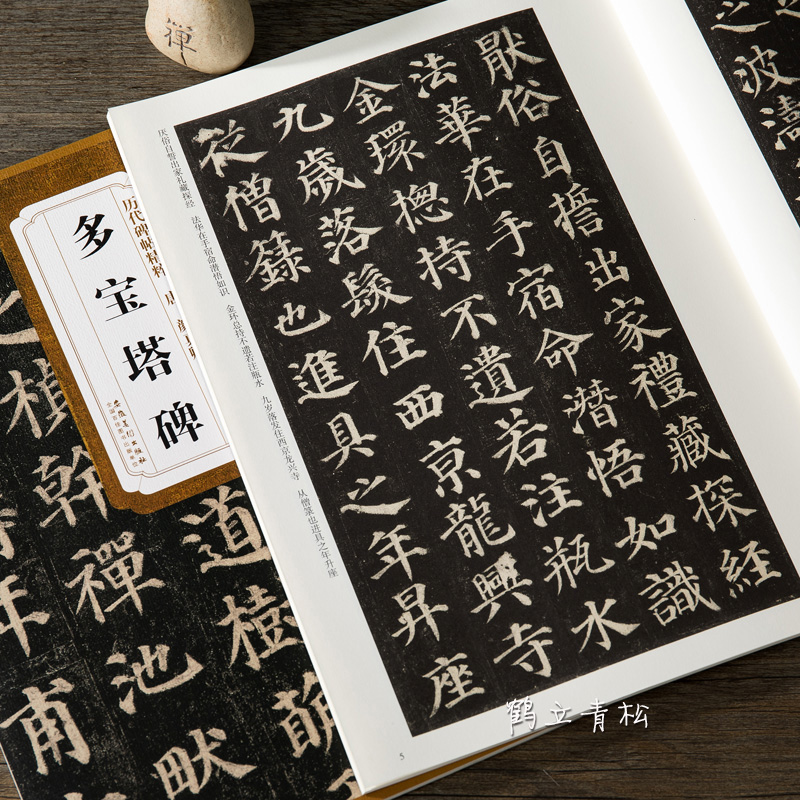 禪
之波濤
厭俗自誓出家禮藏探經
法華在手宿命潛悟如識
金環揔持不遺若注瓶水
九歲落髮住西京龍興寺
從僧籙也進具之年昇座
厌俗自誓出家礼藏探经 法华在手宿命潜悟如识 金环总持不遗若注瓶水 九岁落发住西京龙兴寺 从僧箓也进具之年升座
5
历代碑帖精粹
多宝塔碑
安徽美术出版社
全国百佳图书出版单位
道樹萌
幹禪池畎
年甫
鹤立青松